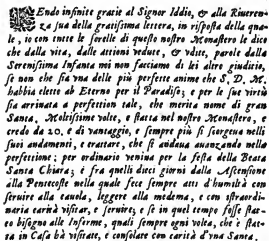 REndo infinite gratie al Signor Iddio, & alla Riueren-
za sua della gratissima lettera, in risposta della qua-
le, io con tutte le sorelle di questo nostro Monastero le dico
che dalla vita, dalle attioni vedute, & vdite, parole dalla
Serenissima Infanta mi non facciamo di lei altro giudicio,
se non che sia vna delle più perfette anime che S. D. M.
habbia eletto ab Eterno per il Paradiso; e per le sue virtù
sia arriuata a perfettion tale, che merita nome di gran
Santa. Moltissime volte, è stata nel nostro Monastero, e
credo da 20. e di vantaggio, e sempre più si scorgeua nelli
suoi andamenti, e trattar, che si andaua auanzando nella
perfettione; per ordinario veniua per la festa della Beata
Santa Chiara; e frà quelli dieci giorni dalla Ascensione
alla Pentecoste nelli quali fece sempre atti d'humiltà con
seruire alla tauola, leggere alla medema, e con straordi-
naria carità visitar, e seruire; e se in quel tempo fosse sta-
to bisogno alle Inferme, quali sempre ogni volta, che è stat-
ta in Casa hà visitate, e consolate con carità d'vna Santa.